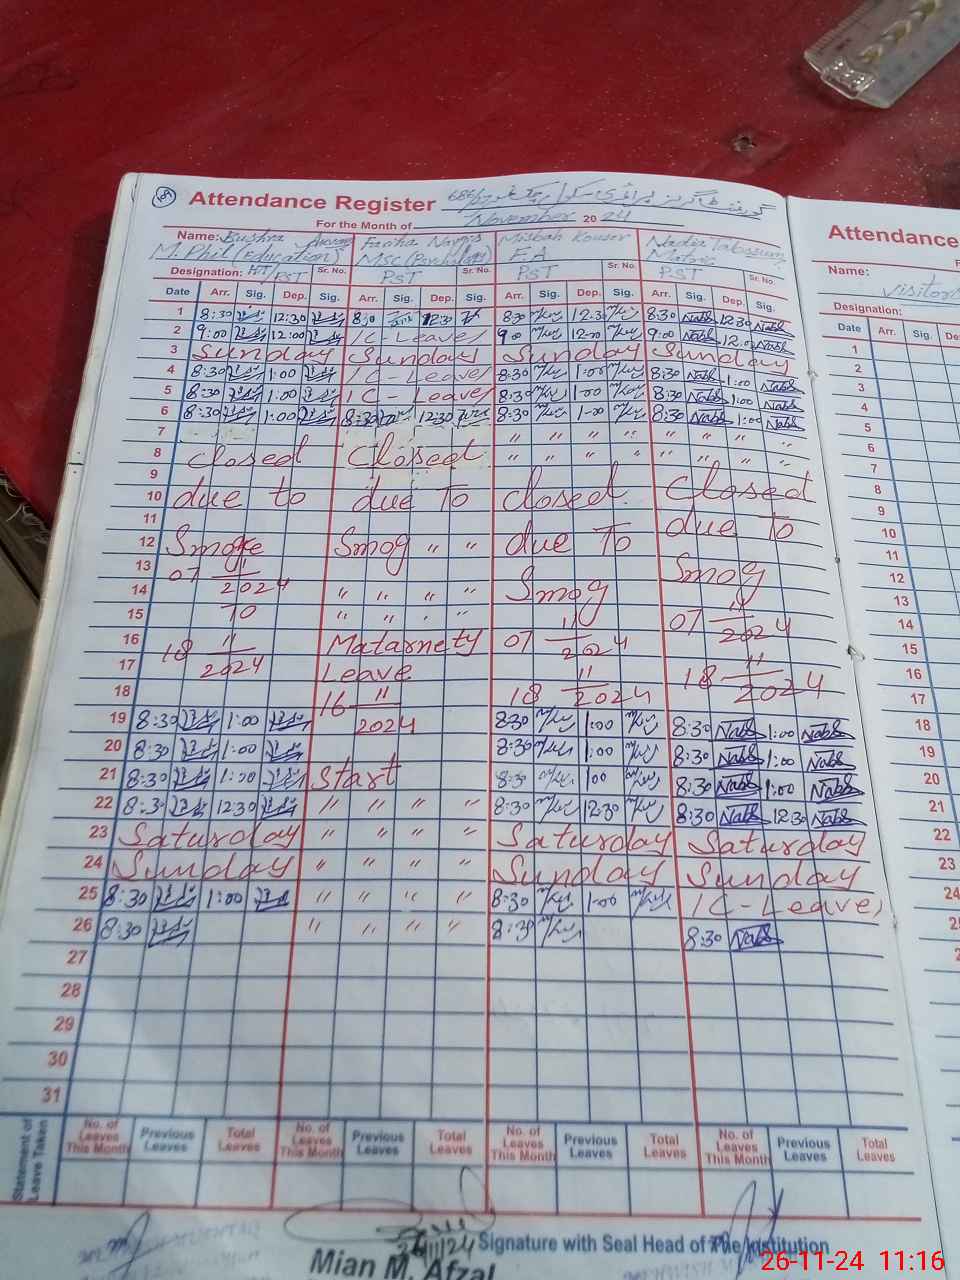 109 Attendance Register 686/
For the Month of November 20 24
Attendance
Name: Bushra Fariha Narjis Misbah Kouser Nadia Tabassum
M.Phil (Education) MSC (Psychology) F.A Matric
Name:
Visitors
Designation: HT/PST Sr. No. PST Sr. No. PST PST Sr. No.
Designation:
Date Arr. Sig. Dep. Sig. Arr. Sig. Dep. Sig. Arr. Sig. Dep. Sig. Arr. Sig. Dep. Sig.
Date Arr. Sig. De
1 8:30 12:30 8:30 12:30 8:30 12:30 8:30 Nabs 12:30 Nabs
2 9:00 12:00 1C-Leave 9:00 12:00 9:00 Nabs 12:00 Nabs
3 Sunday Sunday Sunday Sunday
4 8:30 1:00 1C-Leave 8:30 1:00 8:30 Nabs 1:00 Nabs
5 8:30 1:00 1C-Leave 8:30 1:00 8:30 Nabs 1:00 Nabs
6 8:30 1:00 8:30 12:30 8:30 1:00 8:30 Nabs 1:00 Nabs
7 " " " " " " " "
8 closed Closed " " " " " " " "
9
10 due to due To closed Closed
11 due to
12 Smoge Smog " " due To
13 07 11 Smog
14 2024 " " " " Smog 07 11/2024
15 10 " " " "
16 18 11/2024 Matarnety 07 11/2024
17 Leave 18 11/2024
18 16 11/2024 18 11/2024
19 8:30 1:00 8:30 1:00 8:30 Nabs 1:00 Nabs
20 8:30 1:00 8:30 1:00 8:30 Nabs 1:00 Nabs
21 8:30 1:00 Start 8:30 1:00 8:30 Nabs 1:00 Nabs
22 8:30 12:30 " " " " 8:30 12:30 8:30 Nabs 12:30 Nabs
23 Saturday " " " " Saturday Saturday
24 Sunday " " " " Sunday Sunday
25 8:30 1:00 " " " " 8:30 1:00 1C-Leave
26 8:30 " " " " 8:30 8:30 Nabs
27
28
29
30
31
1
2
3
4
5
6
7
8
9
10
11
12
13
14
15
16
17
18
19
20
21
22
23
24
Statement of Leave Taken
No. of Leaves This Month Previous Leaves Total Leaves No. of Leaves This Month Previous Leaves Total Leaves No. of Leaves This Month Previous Leaves Total Leaves No. of Leaves This Month Previous Leaves Total Leaves
26/11/24 Signature with Seal Head of The Institution
Mian M. Afzal
26-11-24 11:16